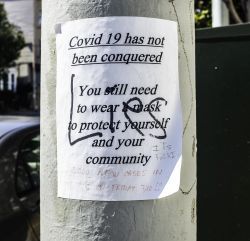 Covid 19 has not
been conquered
You still need
to wear a mask
to protect yourself
and your
community
LIES
CASES IN